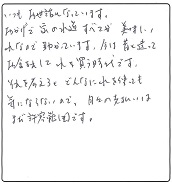 いつもお世話になっています。
おかげで家の水道すべてが美味しい
水なので助かっています。今は昔と違って
お金を出して水を買う時代です。
それを考えるとどんなに水を使っても
気にならないので、月々の支払いは
まだ許容範囲です。